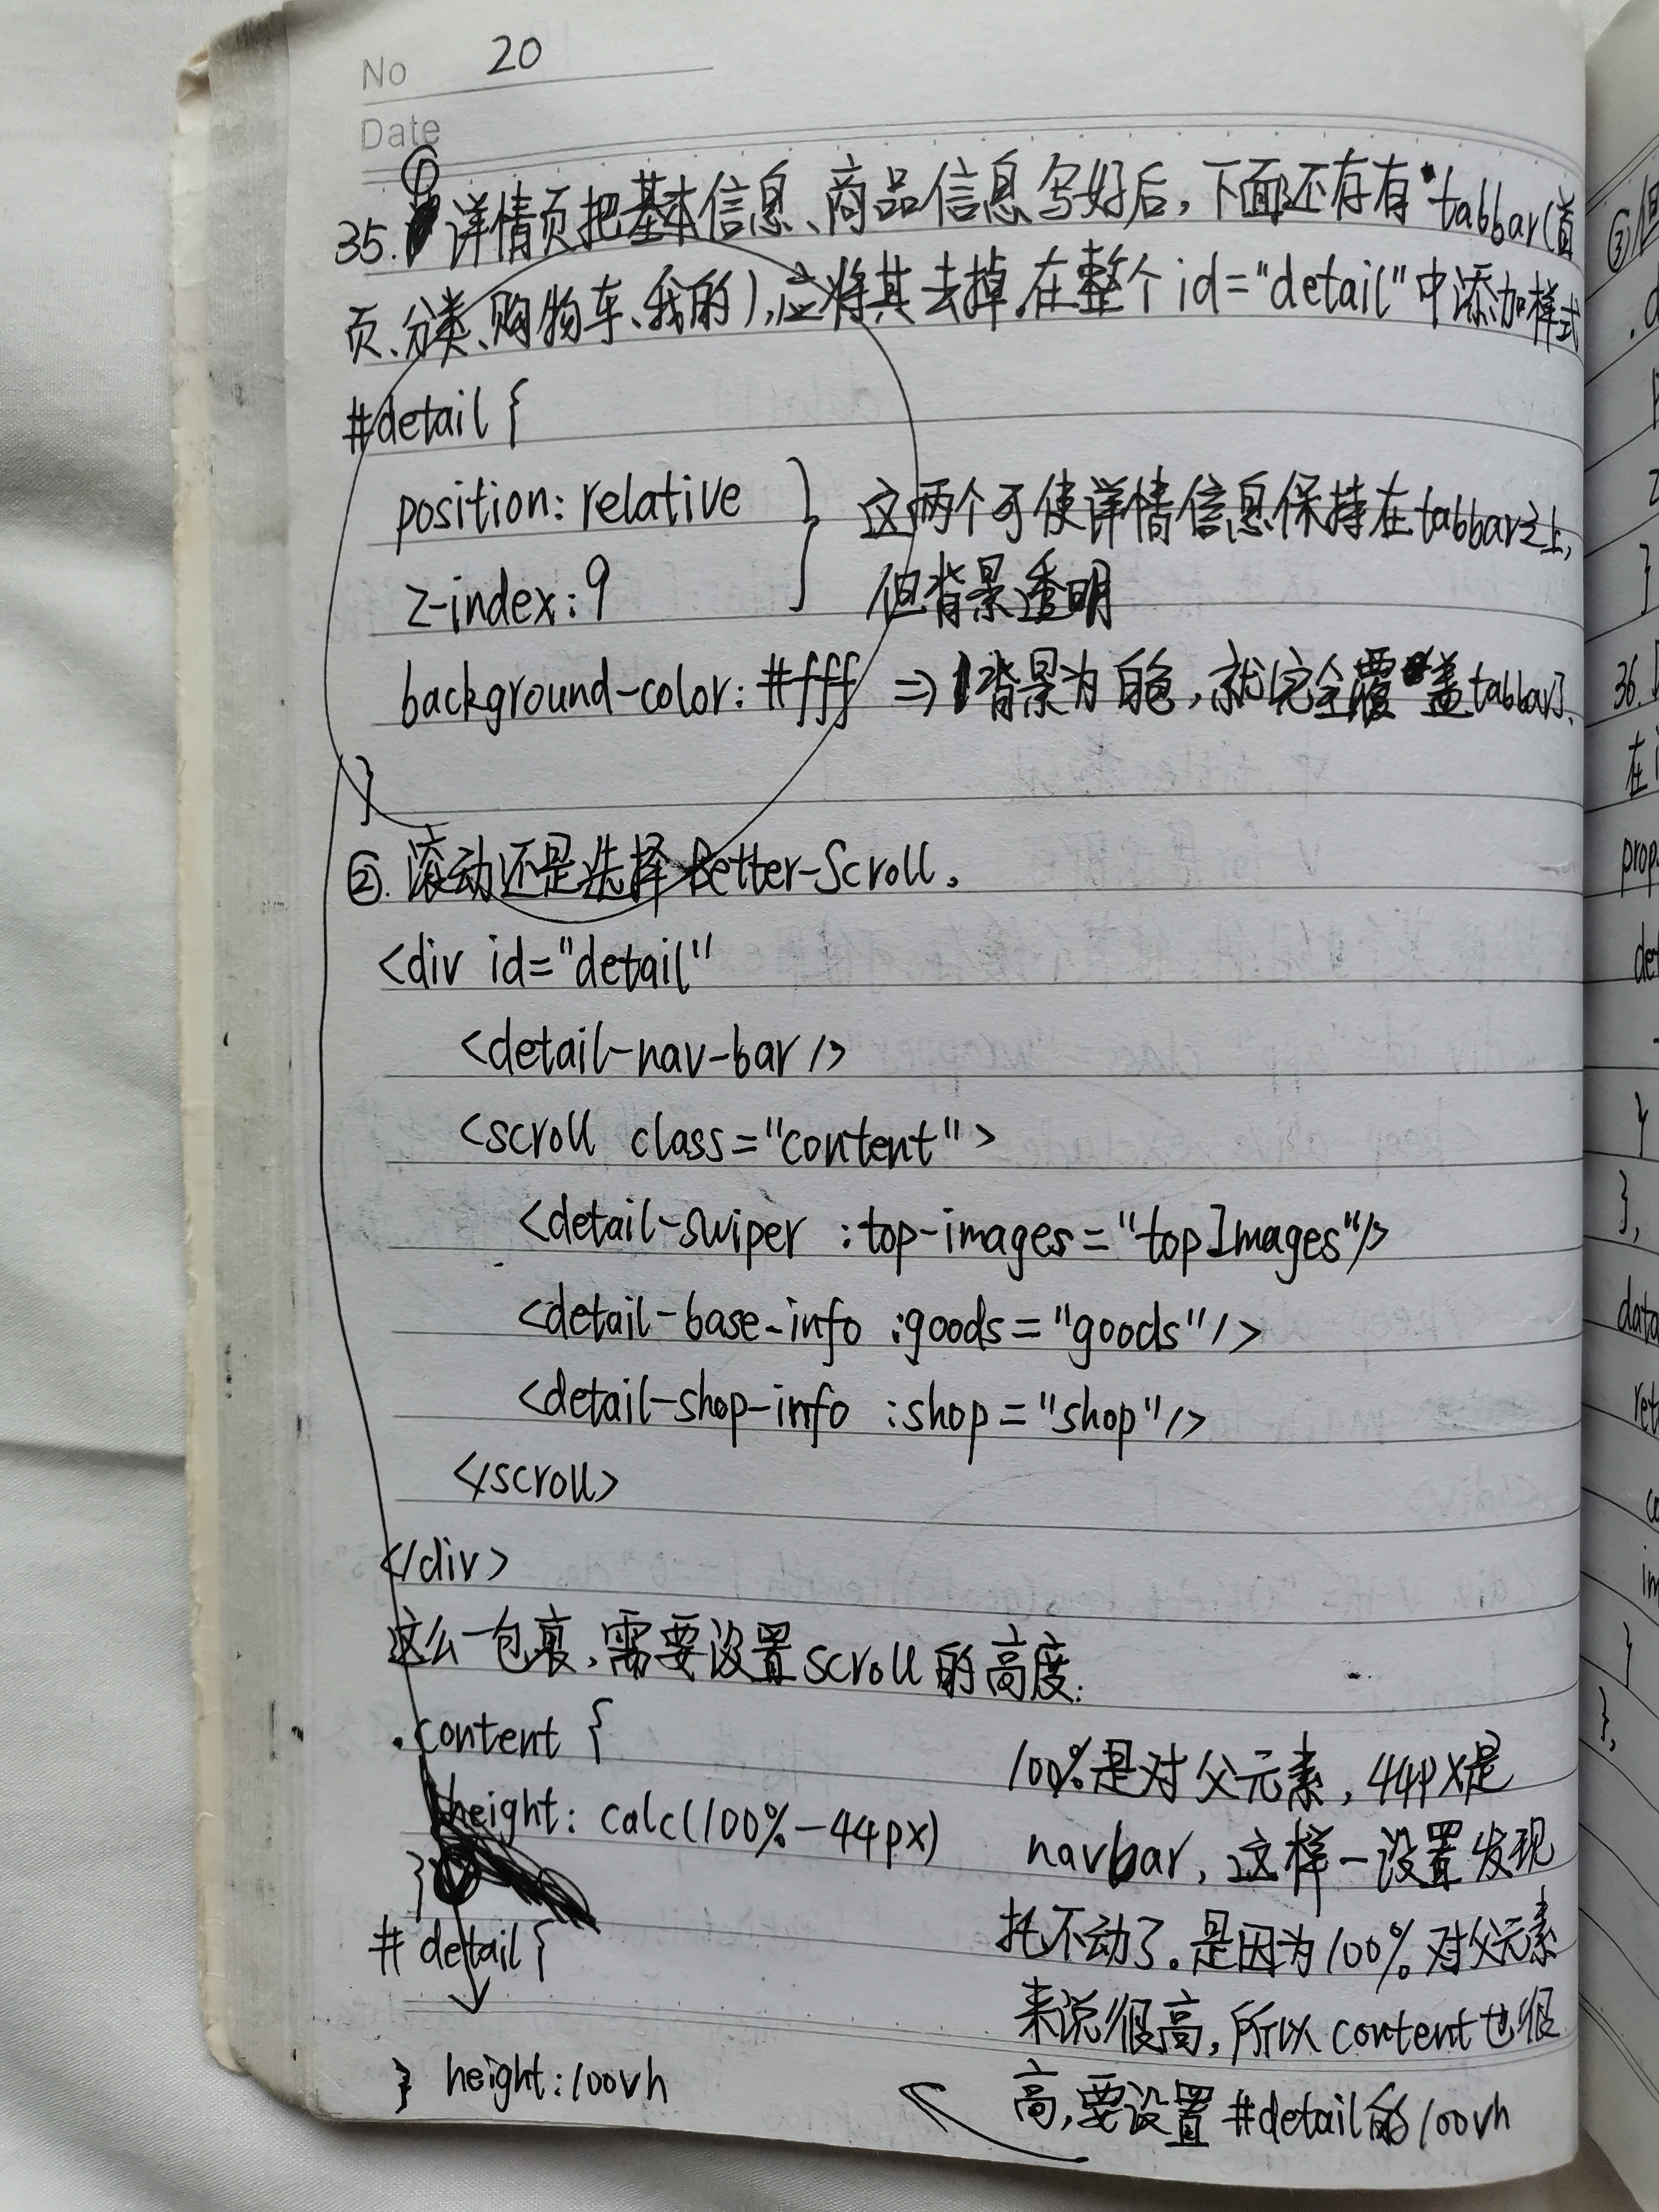 No 20
Date
35.① 详情页把基本信息、商品信息写好后,下面还存有tabbar(首
页、分类、购物车、我的),应将其去掉.在整个id="detail"中添加样式
#detail {
position: relative
z-index: 9
这两个可使详情信息保持在tabbar之上,
但背景透明
background-color: #fff => 背景为白色,就完全覆盖tabbar了.
}
②. 滚动还是选择Better-Scroll。
<div id="detail"
<detail-nav-bar/>
<scroll class="content">
<detail-swiper :top-images="topImages"/>
<detail-base-info :goods="goods"/>
<detail-shop-info :shop="shop"/>
</scroll>
</div>
这么一包裹,需要设置scroll的高度:
.content {
height: calc(100%-44px)
}
#detail{
height:100vh
}
100%是对父元素,44px是
navbar,这样一设置发现
托不动了。是因为100%对父元素
来说很高,所以content也很
高,要设置#detail的100vh
③但
.d
z
}
36.
在i
prop
det
}
},
data
ret
co
im
}
},